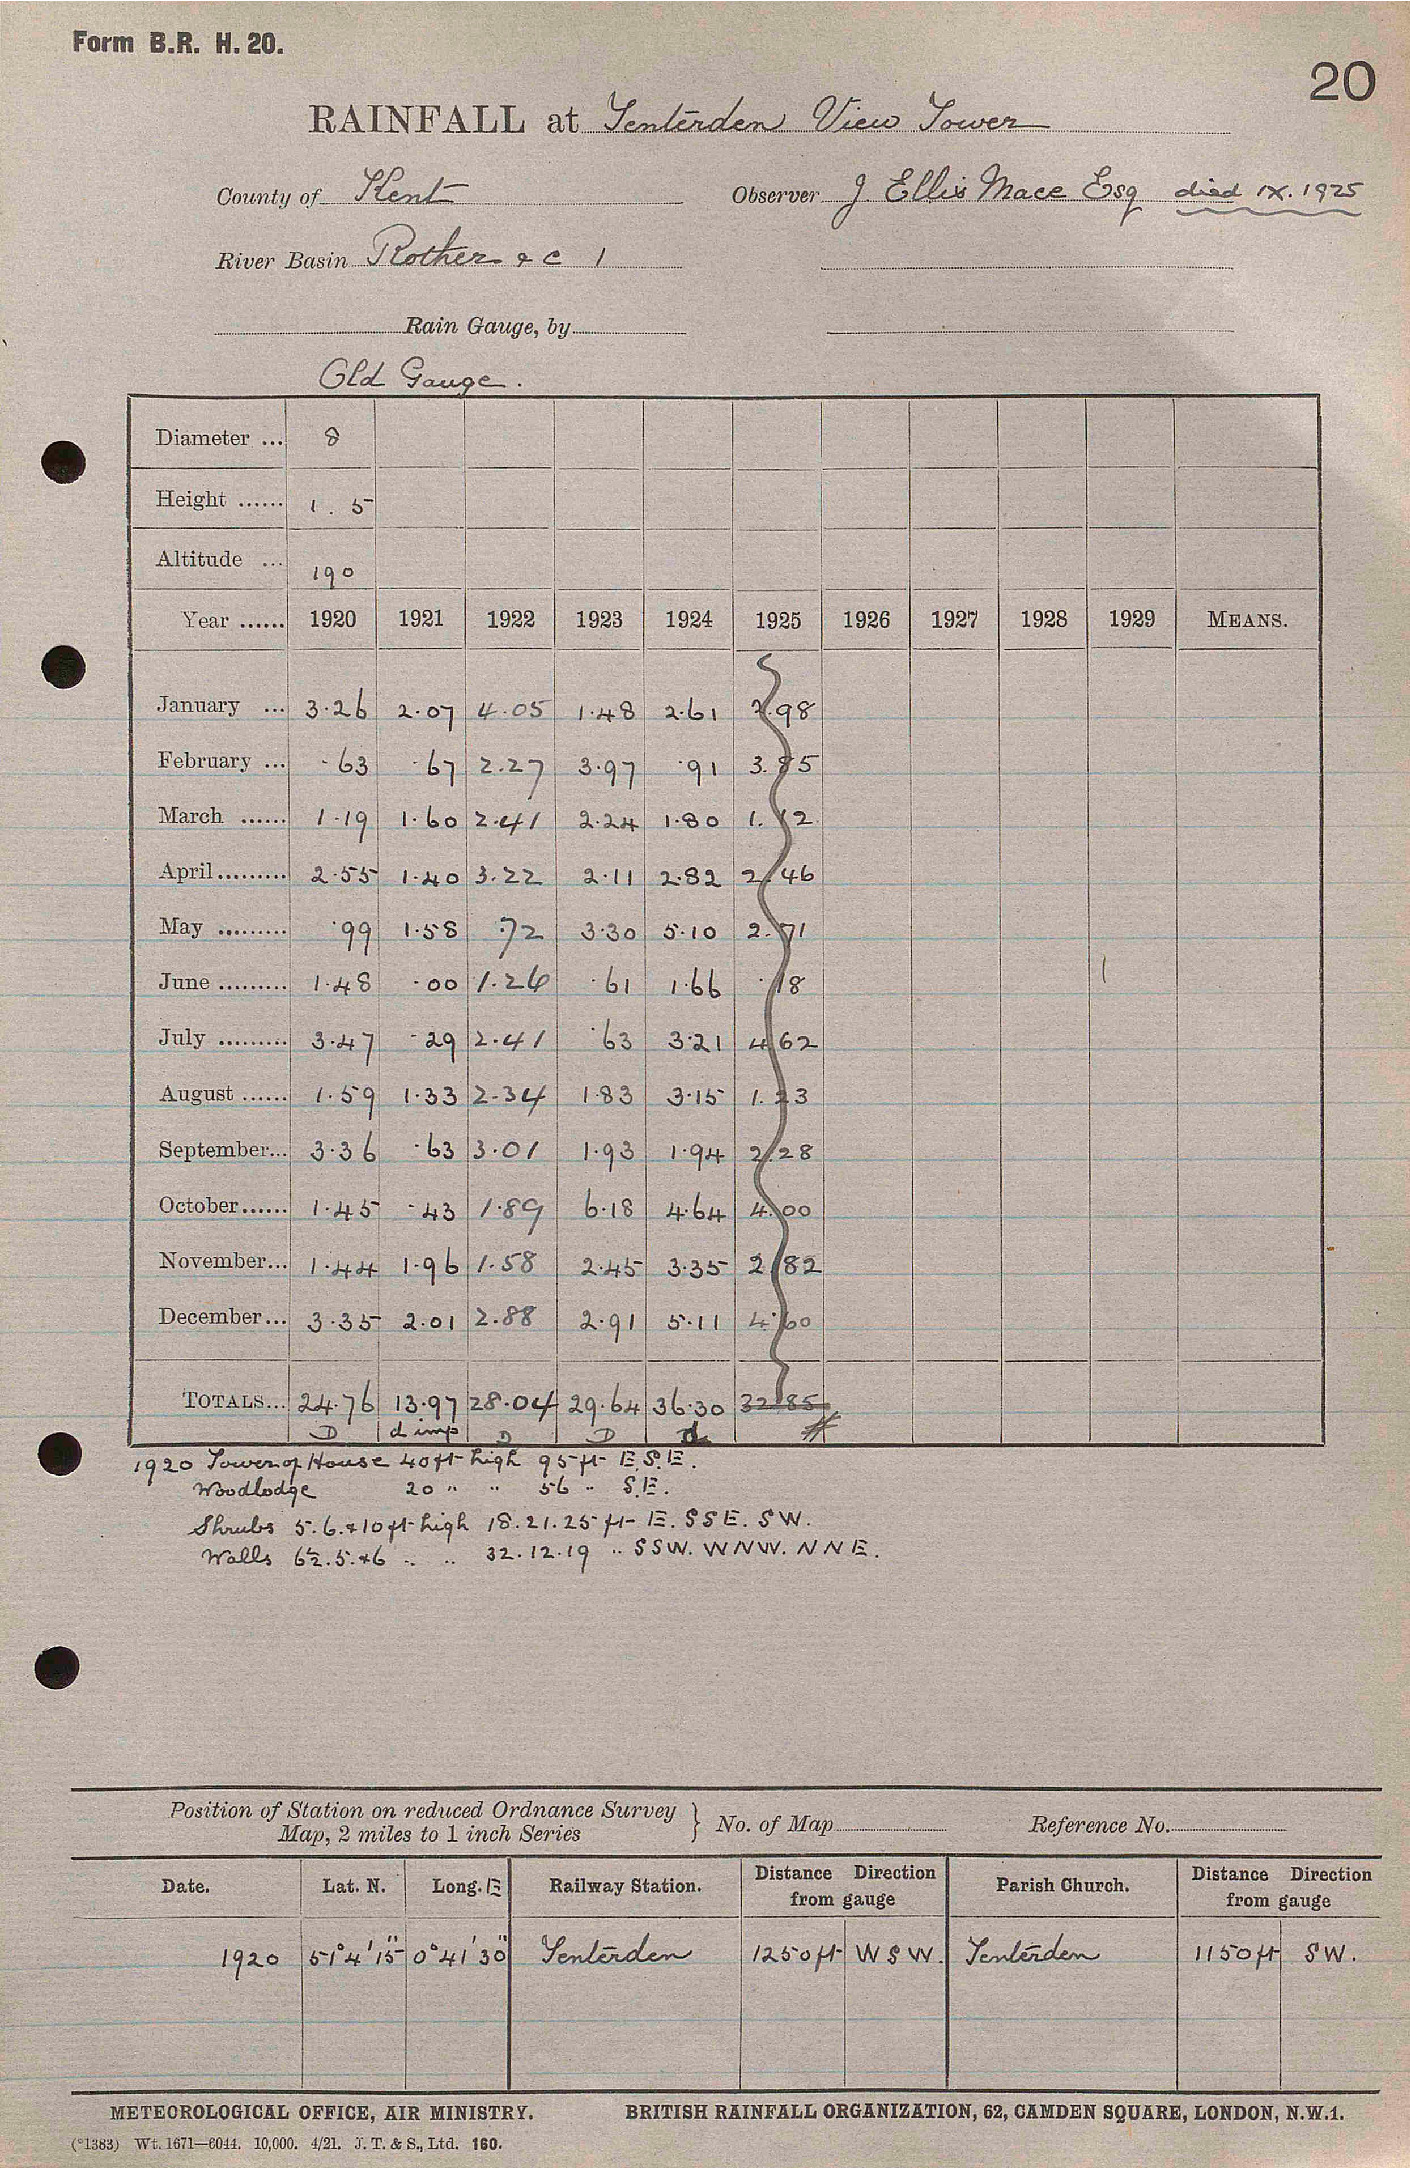 Form B.R. H. 20.
20
RAINFALL at Tenterden View Tower
County of Kent Observer J Ellis Mace Esq died IX. 1925
River Basin Rother & c 1
Rain Gauge, by
Old Gauge.
Diameter ... 8
Height ...... 1. 5
Altitude ... 190
Year ...... 1920 1921 1922 1923 1924 1925 1926 1927 1928 1929 MEANS.
January ... 3.26 2.07 4.05 1.48 2.61 2.98
February ... .63 .67 2.27 3.97 .91 3.85
March ...... 1.19 1.60 2.41 2.24 1.80 1. 2
April ......... 2.55 1.40 3.22 2.11 2.82 2.46
May ......... .99 1.58 .72 3.30 5.10 2.71
June ......... 1.48 .00 1.26 .61 1.66 .18
July ......... 3.47 .29 2.41 .63 3.21 4.62
August ...... 1.59 1.33 2.34 1.83 3.15 1.23
September... 3.36 .63 3.01 1.93 1.94 2.28
October...... 1.45 .43 1.89 6.18 4.64 4.00
November... 1.44 1.96 1.58 2.45 3.35 2.82
December... 3.35 2.01 2.88 2.91 5.11 4.60
TOTALS... 24.76 13.97 28.04 29.64 36.30 32.85
D d imp D D d
1920 Tower of House 40 ft high 95 ft E.S.E.
Woodlodge 20 " " 56 " S.E.
Shrubs 5.6.&10 ft high 18.21.25 ft E. SSE. SW.
Walls 6½.5.&6 " " 32.12.19 " SSW. WNW. NNE.
Position of Station on reduced Ordnance Survey Map, 2 miles to 1 inch Series } No. of Map Reference No.
Date. Lat. N. Long. E Railway Station. Distance Direction from gauge Parish Church. Distance Direction from gauge
1920 51°4'15" 0°41'30" Tenterden 1250 ft W S W. Tenterden 1150 ft SW.
METEOROLOGICAL OFFICE, AIR MINISTRY. BRITISH RAINFALL ORGANIZATION, 62, CAMDEN SQUARE, LONDON, N.W.1.
(*1383) Wt. 1671—6044. 10,000. 4/21. J. T. & S., Ltd. 160.